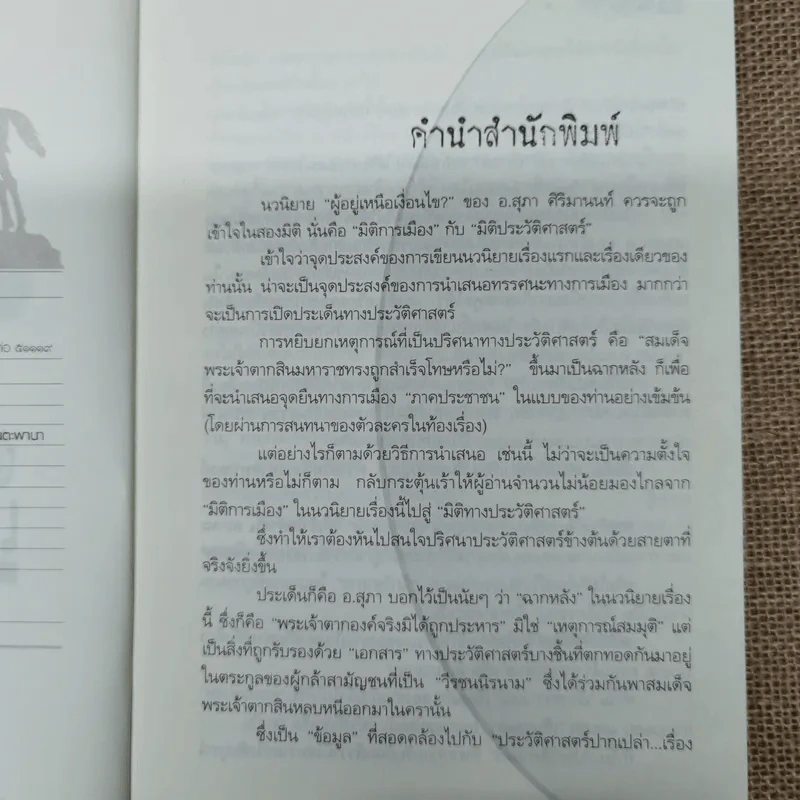 ๕๑๑๑๙
คำนำสำนักพิมพ์
นวนิยาย "ผู้อยู่เหนือเงื่อนไข?" ของ อ.สุภา ศิริมานนท์ ควรจะถูก
เข้าใจในสองมิติ นั่นคือ "มิติการเมือง" กับ "มิติประวัติศาสตร์"
เข้าใจว่าจุดประสงค์ของการเขียนนวนิยายเรื่องแรกและเรื่องเดียวของ
ท่านนั้น น่าจะเป็นจุดประสงค์ของการนำเสนอทรรศนะทางการเมือง มากกว่า
จะเป็นการเปิดประเด็นทางประวัติศาสตร์
การหยิบยกเหตุการณ์ที่เป็นปริศนาทางประวัติศาสตร์ คือ "สมเด็จ
พระเจ้าตากสินมหาราชทรงถูกสำเร็จโทษหรือไม่?" ขึ้นมาเป็นฉากหลัง ก็เพื่อ
ที่จะนำเสนอจุดยืนทางการเมือง "ภาคประชาชน" ในแบบของท่านอย่างเข้มข้น
(โดยผ่านการสนทนาของตัวละครในท้องเรื่อง)
แต่อย่างไรก็ตามด้วยวิธีการนำเสนอ เช่นนี้ ไม่ว่าจะเป็นความตั้งใจ
ของท่านหรือไม่ก็ตาม กลับกระตุ้นเร้าให้ผู้อ่านจำนวนไม่น้อยมองไกลจาก
"มิติการเมือง" ในนวนิยายเรื่องนี้ไปสู่ "มิติทางประวัติศาสตร์"
ซึ่งทำให้เราต้องหันไปสนใจปริศนาประวัติศาสตร์ข้างต้นด้วยสายตาที่
จริงจังยิ่งขึ้น
ประเด็นก็คือ อ.สุภา บอกไว้เป็นนัยๆ ว่า "ฉากหลัง" ในนวนิยายเรื่อง
นี้ ซึ่งก็คือ "พระเจ้าตากองค์จริงมิได้ถูกประหาร" มิใช่ "เหตุการณ์สมมุติ" แต่
เป็นสิ่งที่ถูกรับรองด้วย "เอกสาร" ทางประวัติศาสตร์บางชิ้นที่ตกทอดกันมาอยู่
ในตระกูลของผู้กล้าสามัญชนที่เป็น "วีรชนนิรนาม" ซึ่งได้ร่วมกันพาสมเด็จ
พระเจ้าตากสินหลบหนีออกมาในครานั้น
ซึ่งเป็น "ข้อมูล" ที่สอดคล้องไปกับ "ประวัติศาสตร์ปากเปล่า...เรื่อง